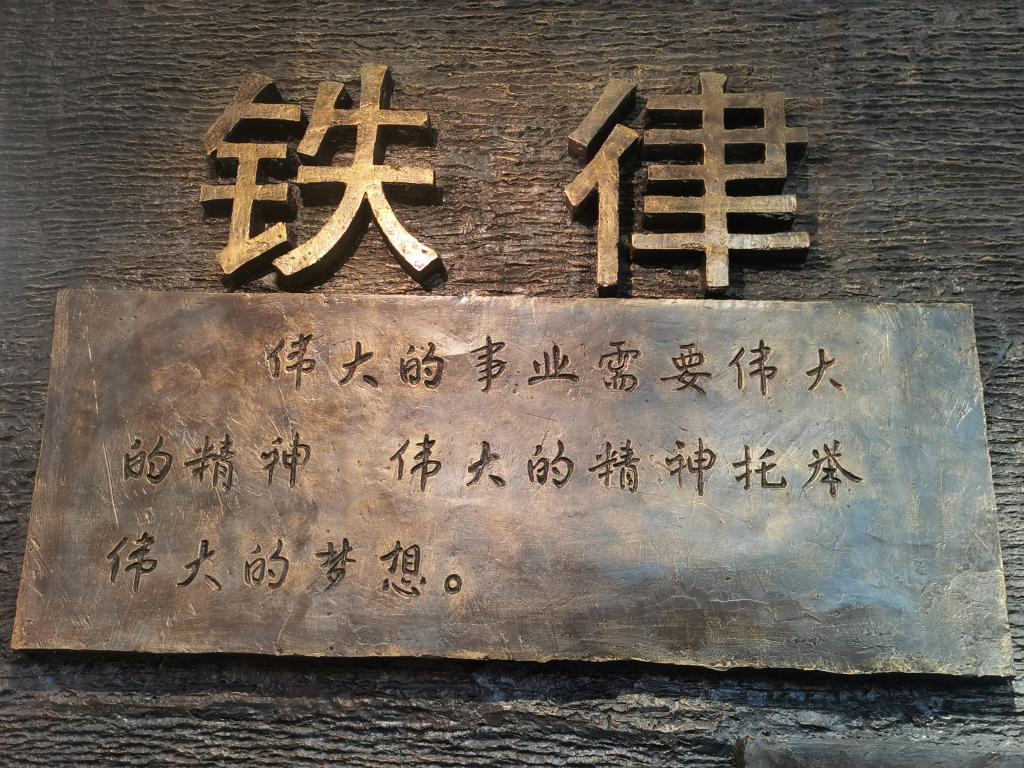 铁律
伟大的事业需要伟大
的精神 伟大的精神托举
伟大的梦想。